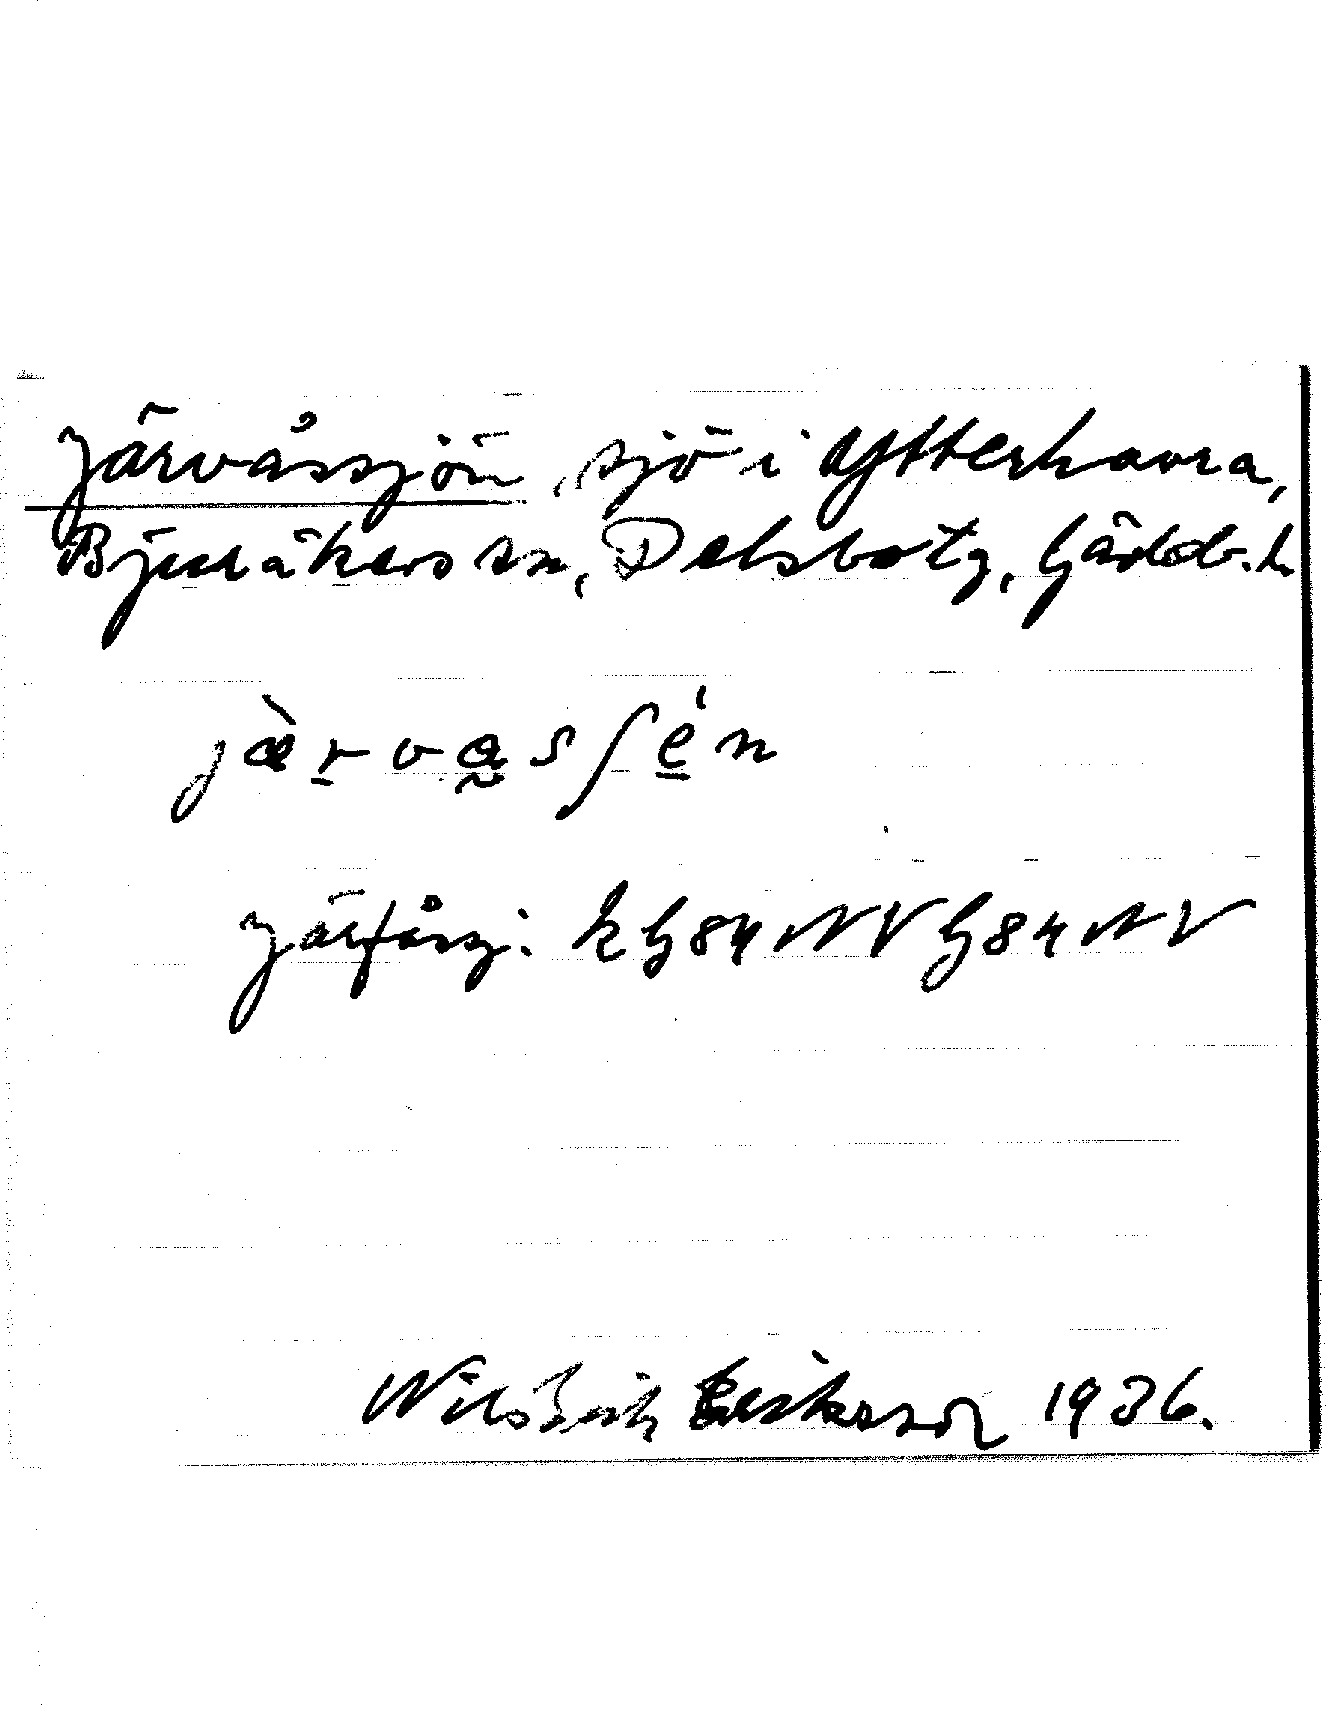 Järvåssjön, sjö i Ytterhavra,
Bjuråkers sn, Delsbo tg, Gävleb. l.
jæ̀rvas∫én
Järfåssj. k G84NV G84NV
Nils Erik Eriksson 1936.